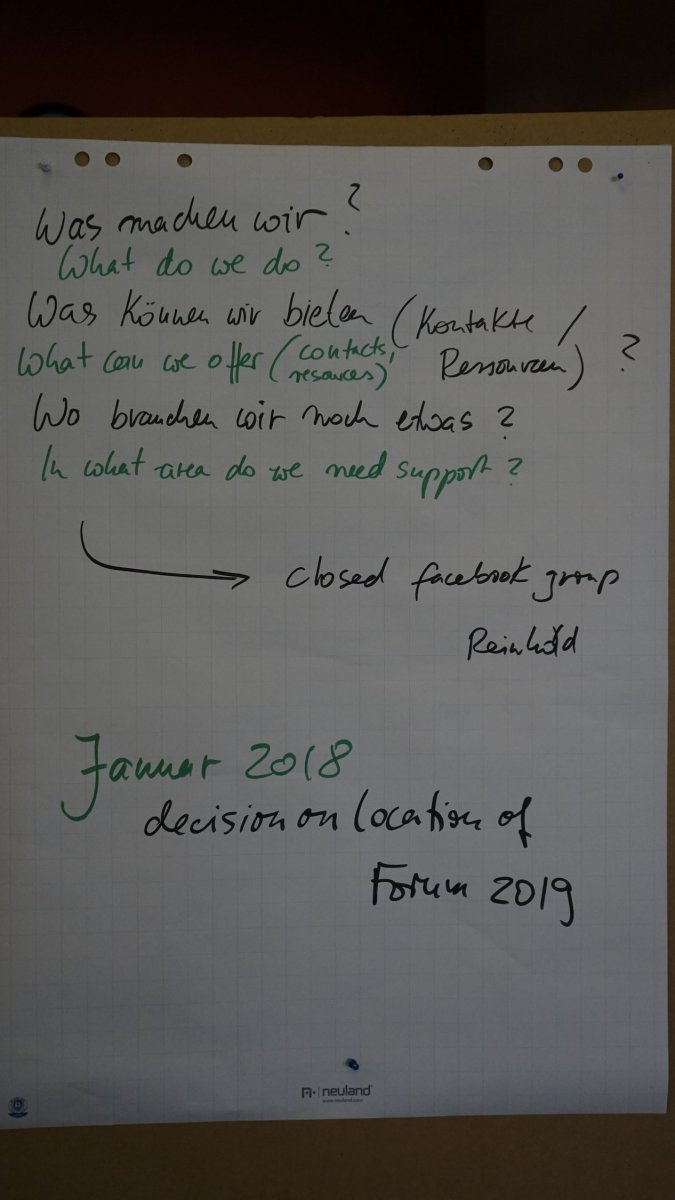 Was machen wir?
What do we do?
Was können wir bieten (Kontakte /
Ressourcen) ?
What can we offer (contacts,
resources)
Wo brauchen wir noch etwas?
In what area do we need support?
closed facebook group
Reinhold
Januar 2018
decision on location of
Forum 2019
neuland
www.neuland.com